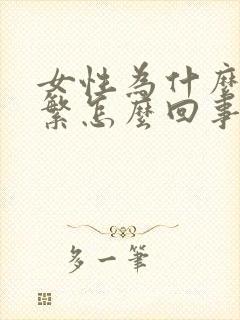 女性為什麼
繁怎麼回事
多一筆